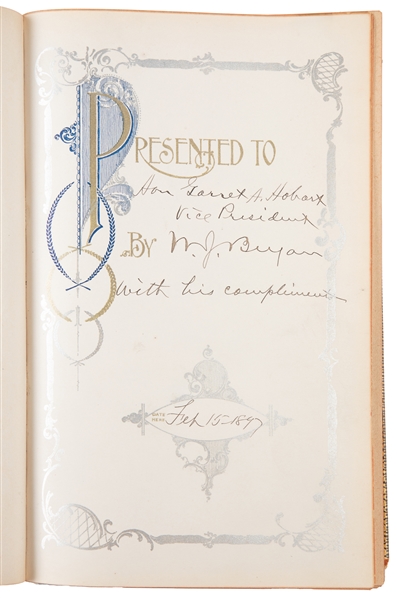 PRESENTED TO
Hon Garret A. Hobart
Vice President
BY W. J. Bryan
with his compliments
Feb 15-1897